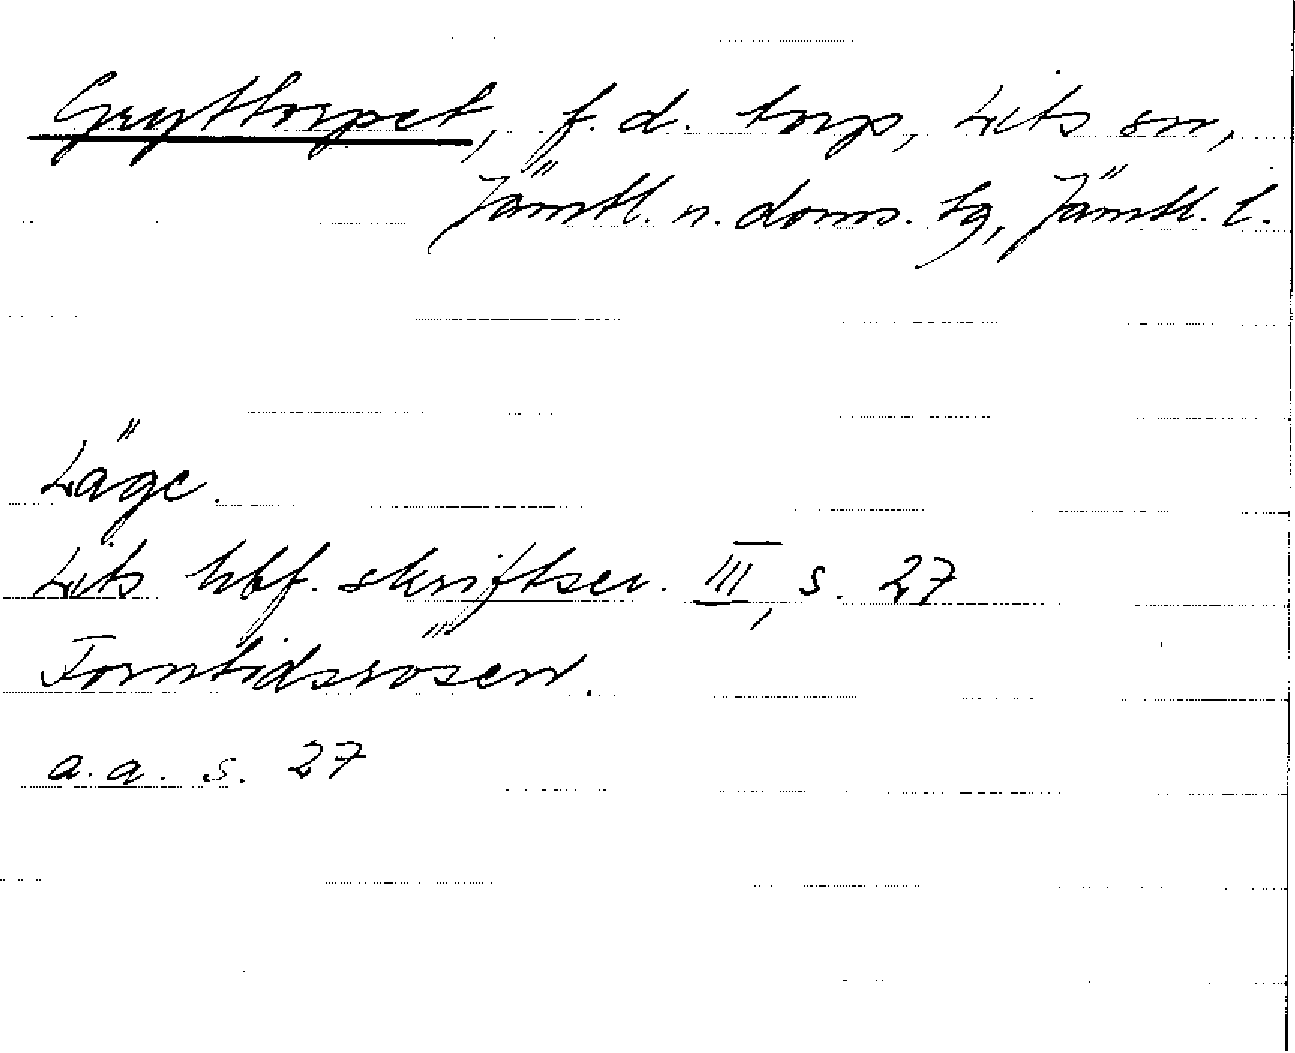 Gryttorpet, f.d. torp, Lits sn,
Jämtl. n. doms. tg, Jämtl. l.
Läge.
Lits hbf. skriftser. III, s. 27
Forntidsrösen.
a.a. s. 27